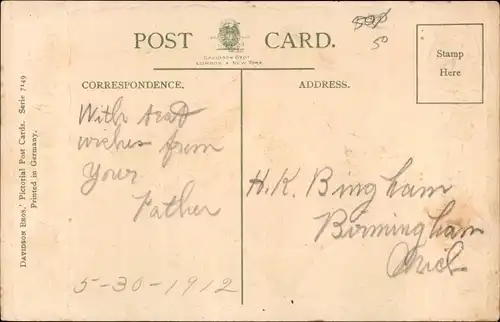 POST CARD.
DAVIDSON BROS.
LONDON & NEW YORK.
Stamp
Here
CORRESPONDENCE.
ADDRESS.
With best
wishes from
Your
Father
5-30-1912
H. K. Bingham
Birmingham
Mich
DAVIDSON BROS.' Pictorial Post Cards. Serie 7149
Printed in Germany.